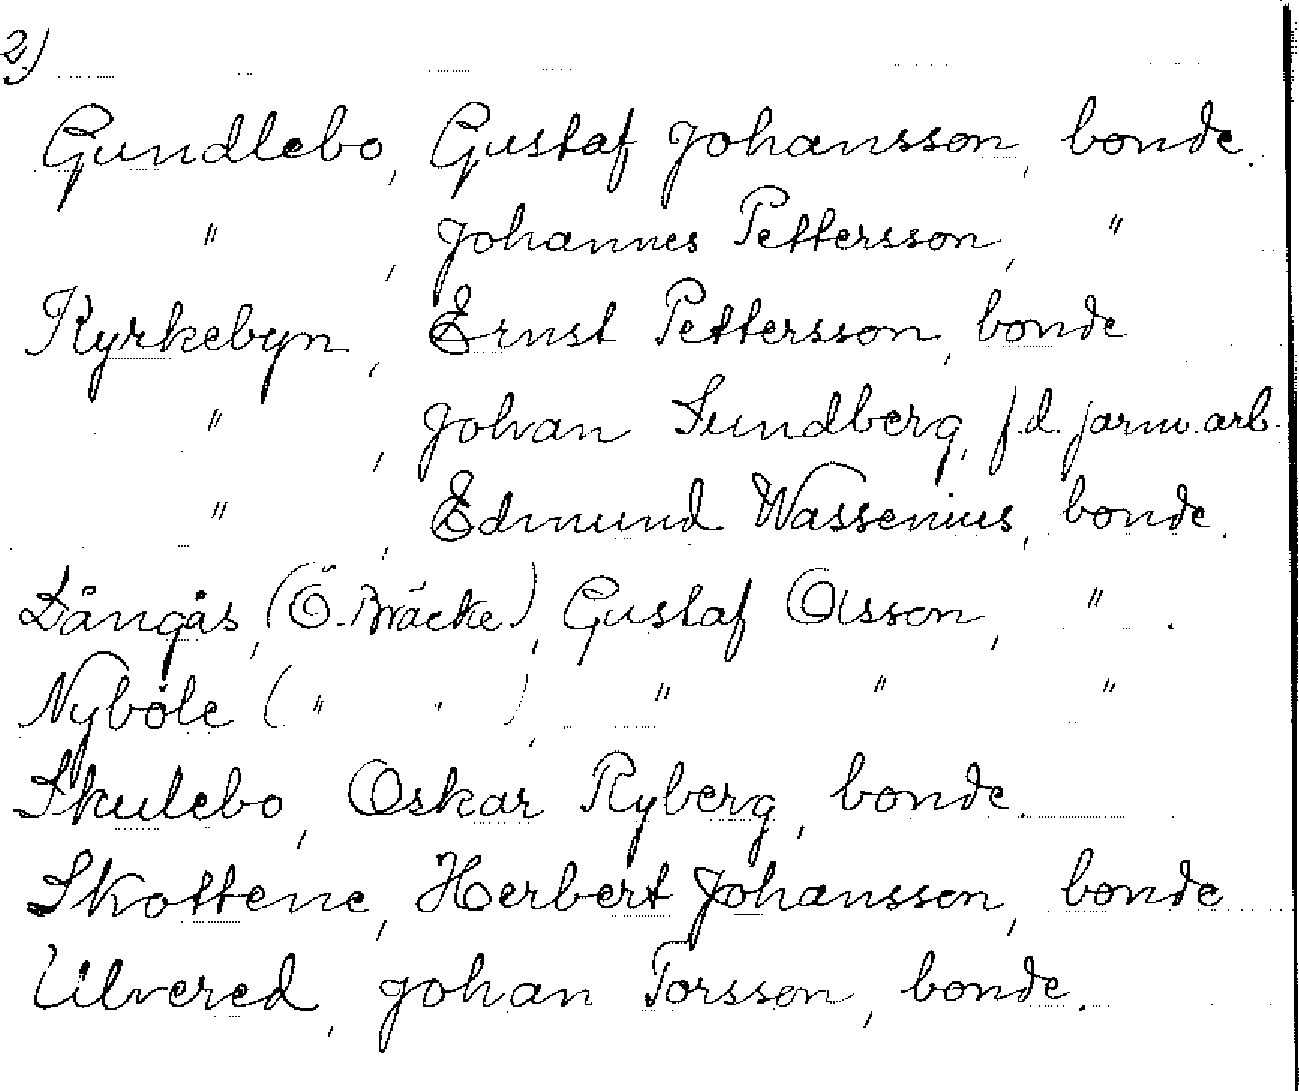 2)
Gundlebo, Gustaf Johansson, bonde.
" , Johannes Pettersson, "
Kyrkebyn, Ernst Pettersson, bonde
" , Johan Sundberg, f.d. jarnv.arb.
" , Edmund Wassenius, bonde.
Långås, (Ö. Bräcke), Gustaf Olsson, " .
Nyböle ( " . ), " " "
Skulebo, Oskar Ryberg, bonde.
Skottene, Herbert Johansson, bonde
Ulvered, Johan Torsson, bonde.